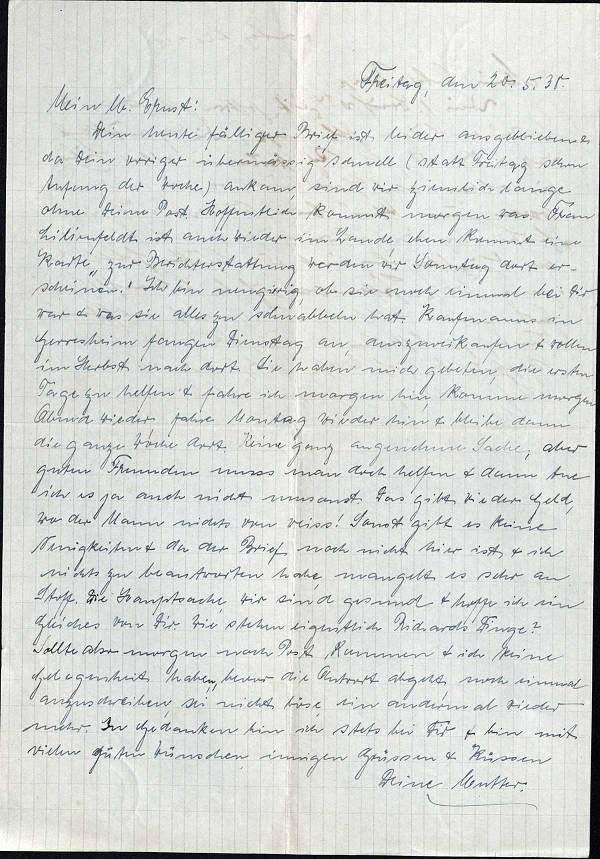 Freitag, den 20.5.38.
Mein lb. Ernst!
Dein heute fälliger Brief ist leider ausgeblieben &
da Dein voriger übermässig schnell (statt Freitag schon
Anfang der Woche) ankam, sind wir ziemlich lange
ohne Deine Post. Hoffentlich kommt morgen was. Frau
Lilienfeldt ist auch wieder im Lande, eben kommt eine
Karte "zur Berichterstattung werden wir Sonntag dort er-
scheinen." Ich bin neugierig, ob sie noch einmal bei Dir
war & was sie alles zu schnabbeln hat. Kaufmanns in
Gerresheim fangen Dienstag an, auszuverkaufen & wollen
im Herbst nach dort. Sie haben mich gebeten, die ersten
Tage zu helfen & fahre ich morgen hin, komme morgen
Abend wieder, fahre Montag wieder hin & bleibe dann
die ganze Woche dort. Keine ganz angenehme Sache, aber
guten Freunden muss man doch helfen & dann tue
ich es ja auch nicht umsonst. Das gibt wieder Geld,
wo der Mann nichts von weiss! Sonst gibt es keine
Neuigkeiten & da der Brief noch nicht hier ist, & ich
nichts zu beantworten habe, mangelt es sehr an
Stoff. Die Hauptsache, wir sind gesund & hoffe ich ein
Gleiches von Dir. Wie stehen eigentlich Richards Dinge?
Sollte also morgen noch Post kommen & ich keine
Gelegenheit haben, bevor die Antwort abgeht, noch einmal
anzuschreiben, sei nicht böse, ein andermal wieder
mehr. In Gedanken bin ich stets bei Dir & bin mit
vielen guten Wünschen, innigen Grüssen & Küssen
Deine Mutter.